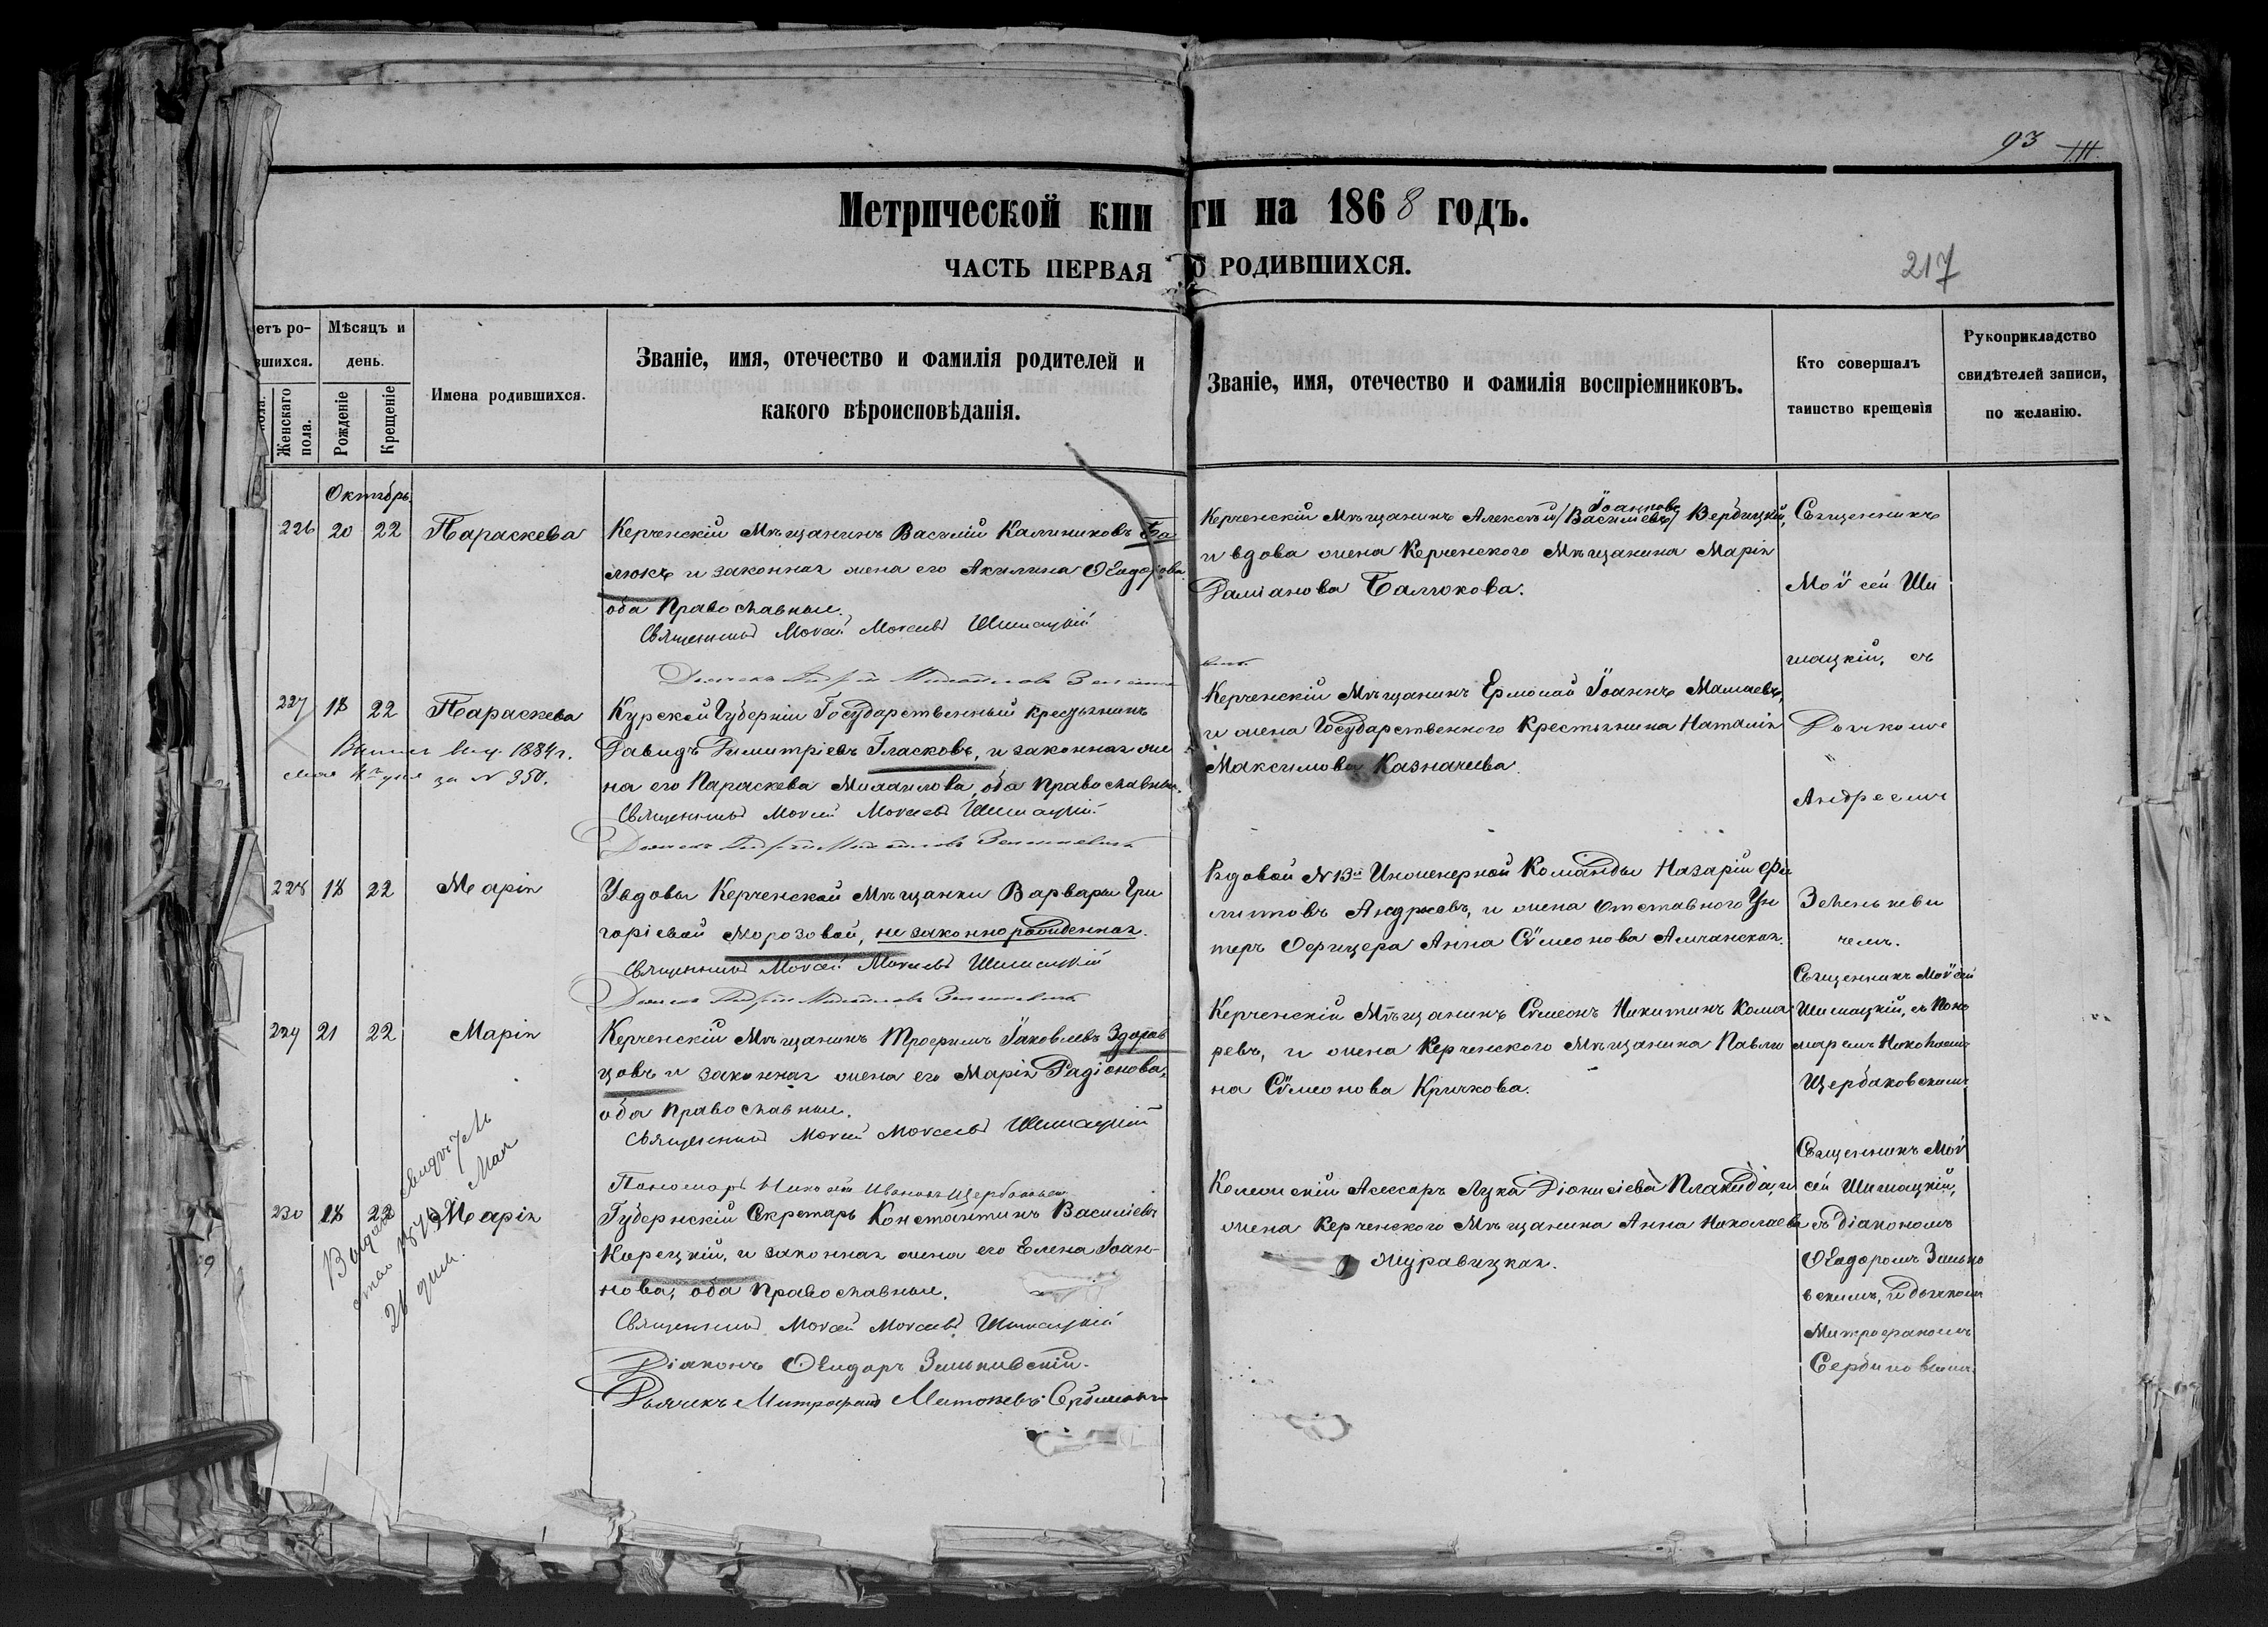 93
Метрической кни ги на 1868 годъ.
ЧАСТЬ ПЕРВАЯ О РОДИВШИХСЯ.
217
етъ ро-
вшихся.
Женскаго пола.
Мѣсяцъ и
день.
Рожденіе
Крещеніе
Имена родившихся.
Званіе, имя, отечество и фамилія родителей и
какого вѣроисповѣданія.
Званіе, имя, отечество и фамилія воспріемниковъ.
Кто совершалъ
таинство крещенія
Рукоприкладство
свидѣтелей записи,
по желанію.
Октябрь
226 20 22 Параскева
Керченскій Мѣщанинъ Василій Калиниковъ Ба
люкъ и законная жена его Акилина Ѳеодорова
оба Православные.
Священникъ Моисей Моисеевъ Шишацкій
Керченскій Мѣщанинъ Алексѣй /Васильевъ/ Іоанновъ Вербицкій,
и вдова жена Керченского Мѣщанина Марія
Даміанова Балюкова.
Священникъ
Моѵсей Ши
шацкій, съ
227 18 22 Параскева
1884 г.
за № 350.
Курской Губерніи Государственный крестьянинъ
Давидъ Димитріевъ Гласковъ, и законная же
на его Параскева Михаилова, оба православные.
Священникъ Моисей Моисеевъ Шишацкій
Керченскій Мѣщанинъ Ермолай Іоаннъ Мамаевъ,
и жена Государственного Крестьянина Наталія
Максимова Казначеева.
Дьячкомъ
Андреемъ
228 18 22 Марія
У вдовы Керченской Мѣщанки Варвары Гри
горіевой Морозовой, не законнорожденная.
Священникъ Моисей Моисеевъ Шишацкій
Рядовой № 13й Инженерной Команды Назарій Фи
липовъ Андреевъ, и жена Отставного Ун
теръ Офицера Анна Сѵмеонова Алчанская.
Зеленкеви
чемъ.
229 21 22 Марія
Керченскій Мѣщанинъ Трофимъ Іаковлевъ Здоров
цовъ и законная жена его Марія Радіонова,
оба православные.
Священникъ Моисей Моисеевъ Шишацкій
Пономарь Николай Ивановъ Щербаковскій
Керченскій Мѣщанинъ Сѵмеонъ Никитинъ Кома
ревъ, и жена Керченского Мѣщанина Павли
на Сѵмеонова Крючкова.
Священникъ Моѵсей
Шишацкій, съ Поно
маремъ Николаемъ
Щербаковскимъ
230 18 22 Марія
Выдано свидѣтель
ство 1875 Мая
28 дня.
Губернскій Секретарь Константинъ Василіевъ
Корецкій, и законная жена его Елена Іоан-
нова, оба православные.
Священникъ Моисей Моисеевъ Шишацкій
Діаконъ Ѳеодоръ Зеньковскій.
Дьячекъ Митрофанъ
Колежскій Асессоръ Лука Діонисіевъ Плакида, и
жена Керченского Мѣщанина Анна Николаева
Журавицкая.
Священникъ Моѵ
сей Шишацкій,
съ Діакономъ
Ѳеодоромъ Зенько
вскимъ, и дьячкомъ
Митрофаномъ